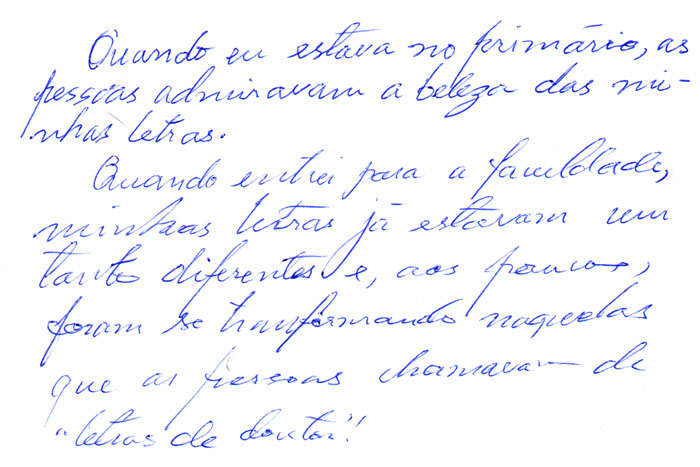 Quando eu estava no primário, as
pessoas admiravam a beleza das mi-
nhas letras.
Quando entrei para a faculdade,
minhas letras já estavam um
tanto diferentes e, aos poucos,
foram se transformando naquelas
que as pessoas chamavam de
"letras de doutor"!